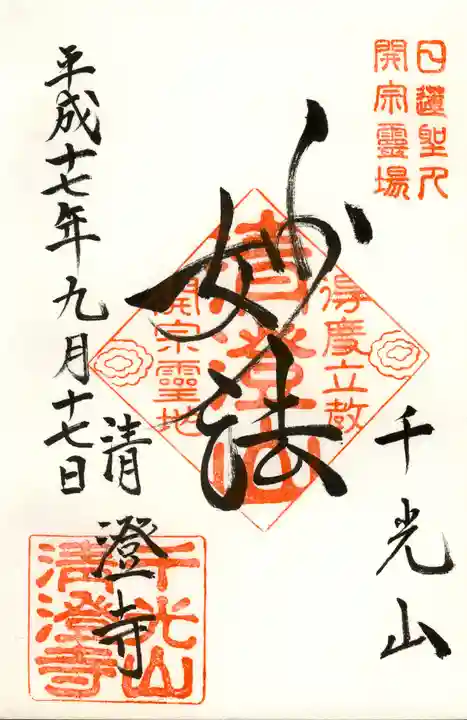 日蓮聖人
開宗靈場
千光山
得度立教
清澄山
開宗靈地
妙法
清澄寺
平成十七年九月十七日
千光山
清澄寺